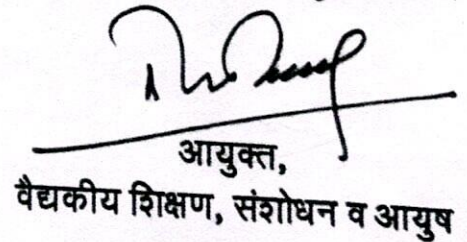 आयुक्त,
वैद्यकीय शिक्षण, संशोधन व आयुष